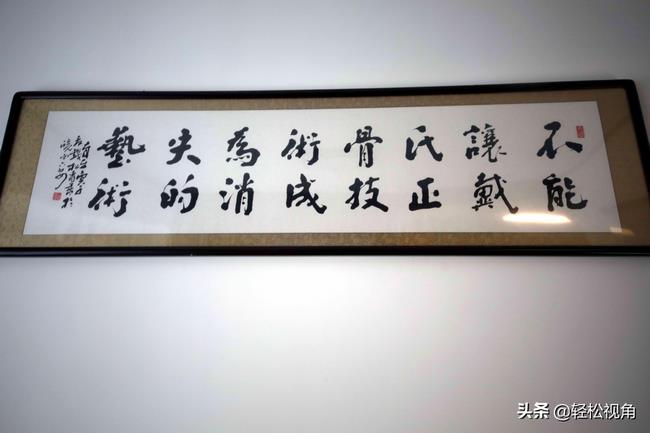 不能
讓戴
氏正
骨技
術成
為消
失的
藝術
头条 @轻松视角